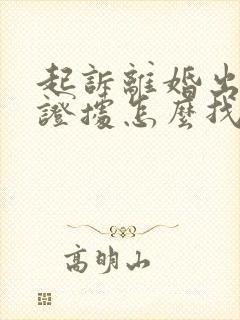 起訴離婚出
證據怎麼找
高明山